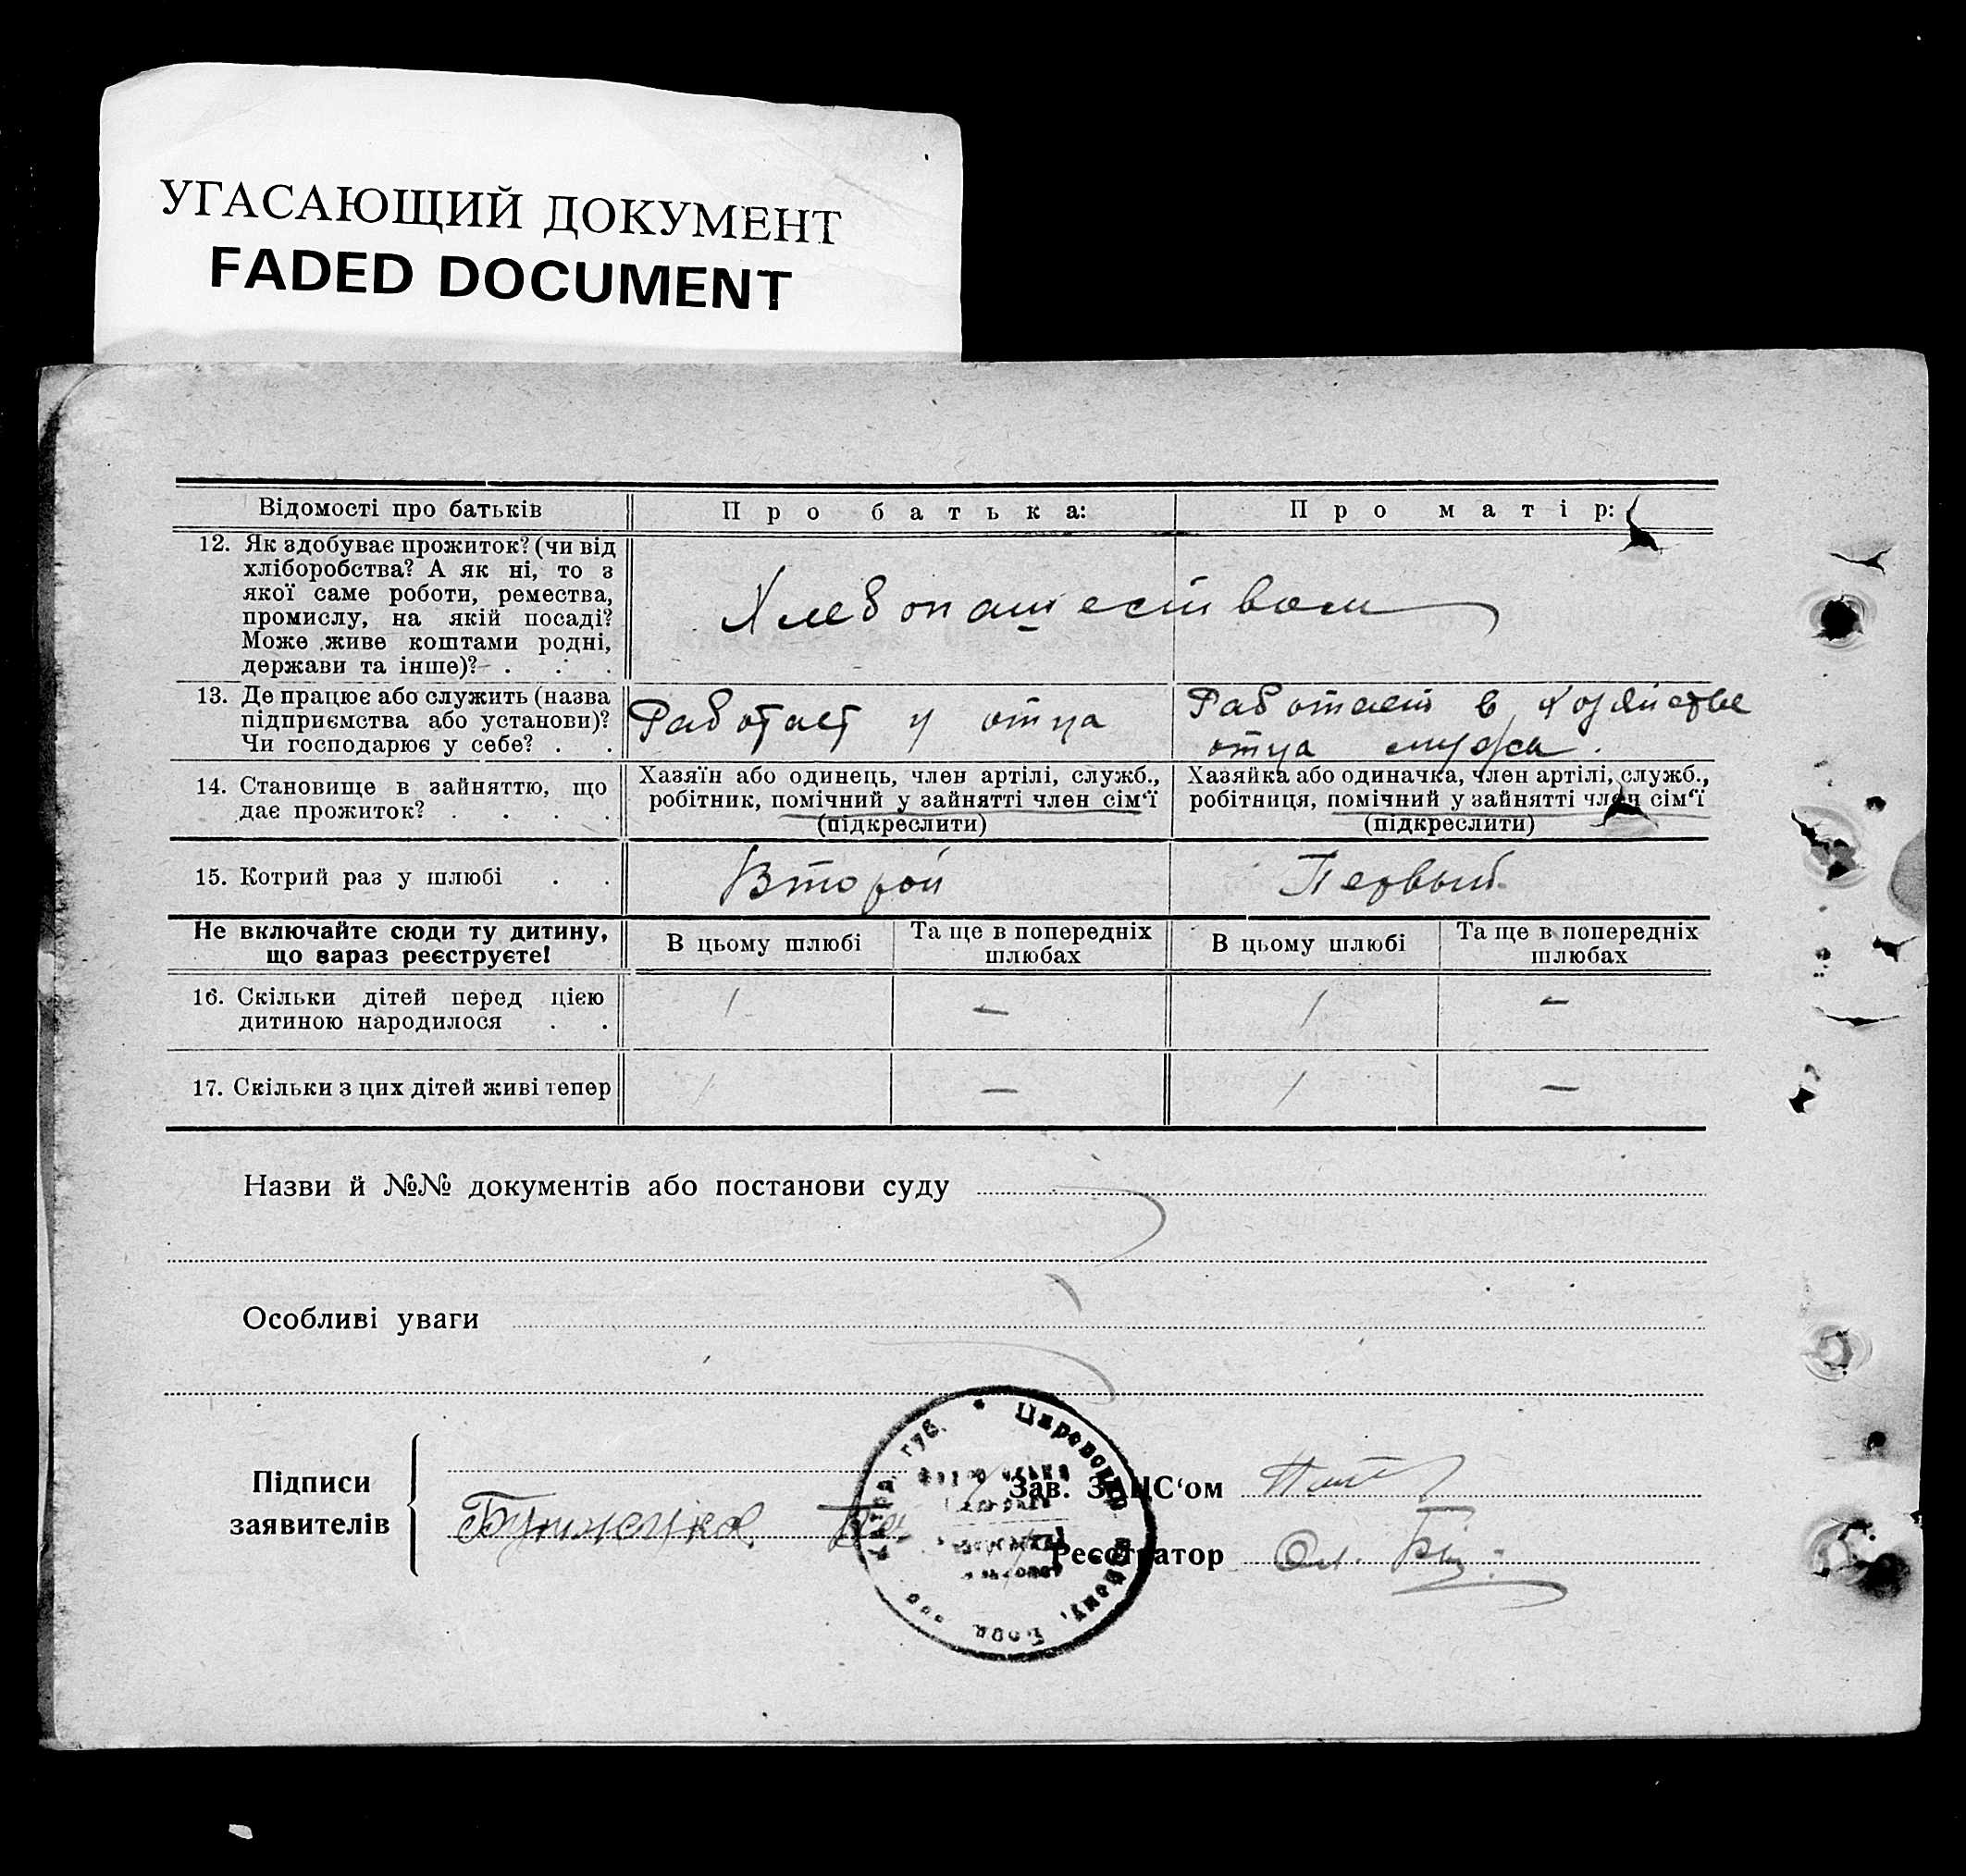 УГАСАЮЩИЙ ДОКУМЕНТ
FADED DOCUMENT
Відомості про батьків
Про батька:
Про матір:
12. Як здобуває прожиток? (чи від
хліборобства? А як ні, то з
якої саме роботи, ремества,
промислу, на якій посаді?
Може живе коштами родні,
держави та інше)? . . .
Хлебопашеством
13. Де працює або служить (назва
підприємства або установи)?
Чи господарює у себе? . .
Работает у отца
Работает в хозяйстве
отца мужа.
14. Становище в зайняттю, що
дає прожиток? . . . .
Хазяїн або одинець, член артілі, служб.,
робітник, помічний у зайнятті член сім‘ї
(підкреслити)
Хазяйка або одиначка, член артілі, служб.,
робітниця, помічний у зайнятті член сім‘ї
(підкреслити)
15. Котрий раз у шлюбі . .
Второй
Первый
Не включайте сюди ту дитину,
що зараз реєструєте!
В цьому шлюбі
Та ще в попередніх
шлюбах
В цьому шлюбі
Та ще в попередніх
шлюбах
16. Скільки дітей перед цією
дитиною народилося . .
1
—
1
—
17. Скільки з цих дітей живі тепер
1
—
1
—
Назви й №№ документів або постанови суду
Особливі уваги
Підписи
заявителів
Зав. ЗАГС‘ом
Реєстратор
губ. *